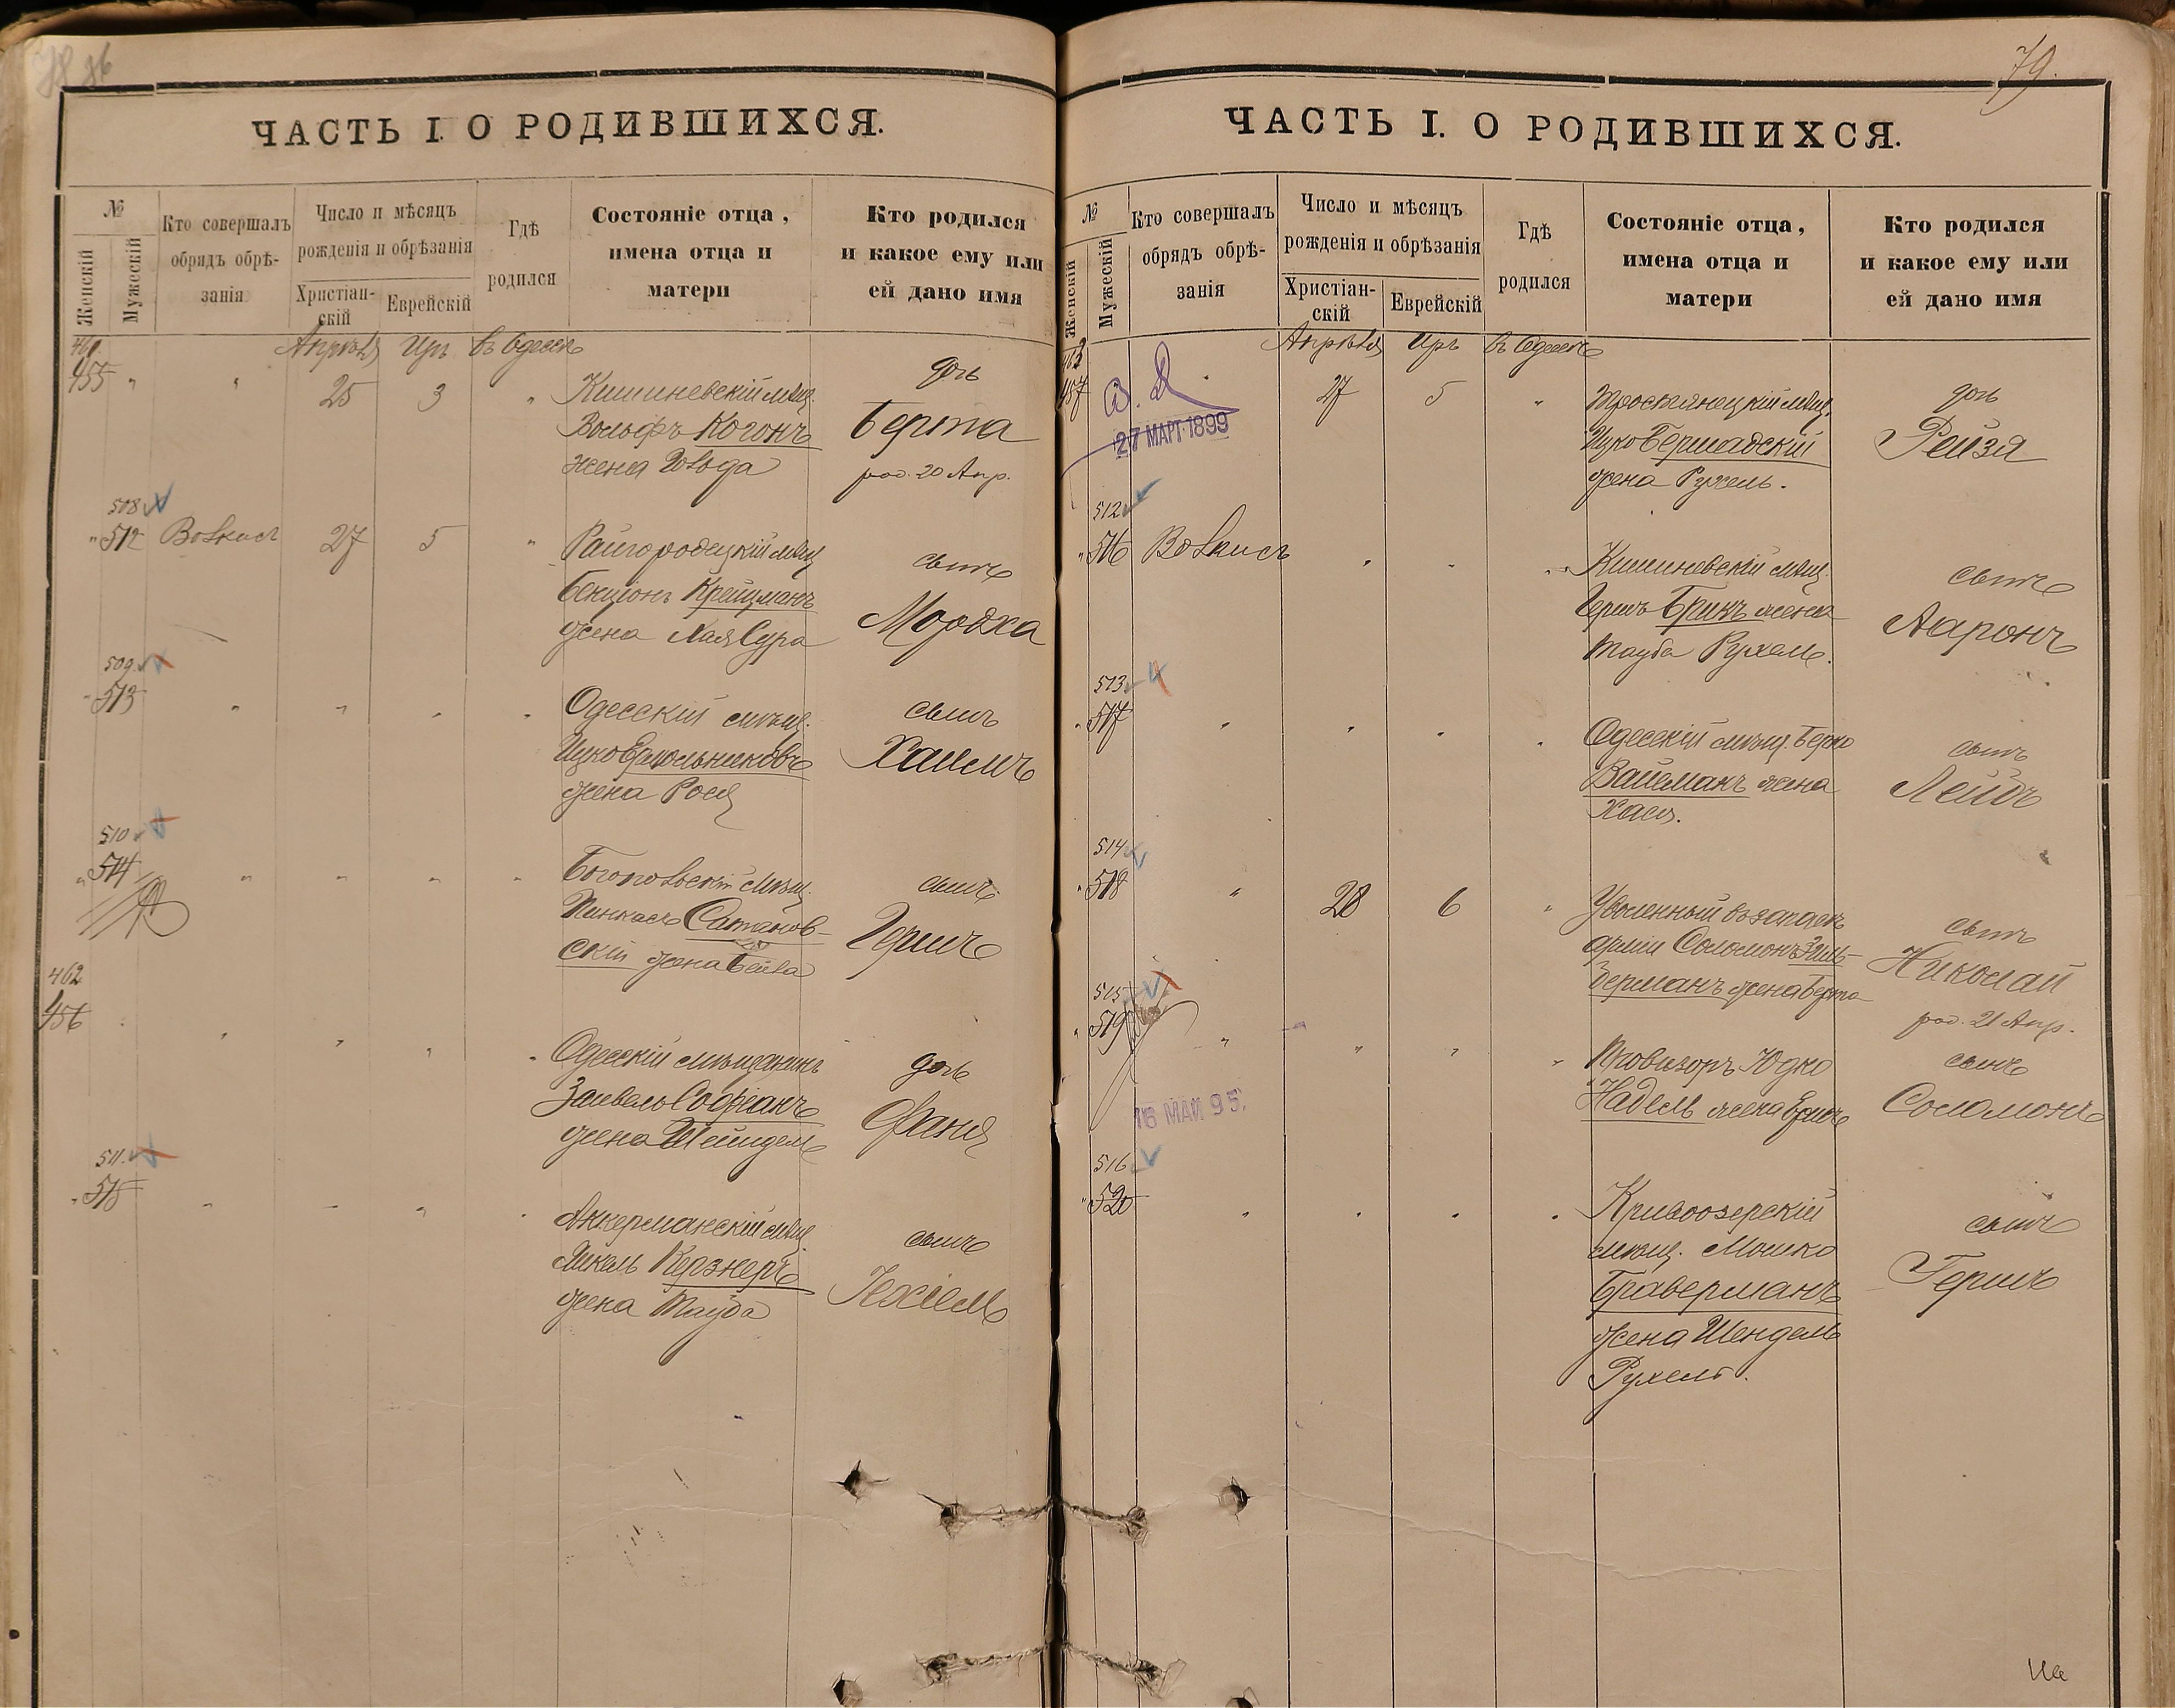 79.
ЧАСТЬ I. О РОДИВШИХСЯ.
№
Женскій
Мужескій
Кто совершалъ
обрядъ обрѣ-
занія
Число и мѣсяцъ
рожденія и обрѣзанія
Христіан-
скій
Еврейскій
Гдѣ
родился
Состояніе отца,
имена отца и
матери
Кто родился
и какое ему или
ей дано имя
Апрѣля Иръ въ Одессѣ
455 " " 25 3 " Кишиневскій мѣщ. дочь
Вольфъ Когонъ Берта
жена род. 20 Апр.
508
" 512 Волкисъ 27 5 " Райгородецкій мѣщ. сынъ
Бенціонъ Крейцманъ Мордха
жена Хая Сура
509
" 513 " " " " Одесскій мѣщ. сынъ
Ицко Хаимъ
жена Рося
510
" 514 " " " " Богопольскій мѣщ. сынъ
Пинкасъ Сатанов- Гершъ
скій жена Бейла
462
456 " " " " Одесскій мѣщанинъ дочь
Зайвель Софіанъ Фаня
жена Шейндель
511
" 515 " " " " Аккерманскій мѣщ. сынъ
Янкель Керзнеръ Іехіель
жена Тауба
ЧАСТЬ I. О РОДИВШИХСЯ.
№
Женскій
Мужескій
Кто совершалъ
обрядъ обрѣ-
занія
Число и мѣсяцъ
рожденія и обрѣзанія
Христіан-
скій
Еврейскій
Гдѣ
родился
Состояніе отца,
имена отца и
матери
Кто родился
и какое ему или
ей дано имя
463 Апрѣля Иръ въ Одессѣ
457 " 27 5 " Тростянецкій мѣщ. дочь
27 МАРТ 1899
Ицко Бершадскій Рейзя
жена Рухель.
512
" 516 Волкисъ " " " Кишиневскій мѣщ. сынъ
Гершъ Бринъ жена Ааронъ
Тауба Рухель.
513
" 517 " " " " Одесскій мѣщ. Берко сынъ
Вайсманъ жена Лейбъ
Хася.
514
" 518 " 28 6 " Уволенный въ запасъ сынъ
арміи Соломонъ Зиль- Николай
берманъ жена Берта род. 21 Апр.
515
" 519 " " " " Провизоръ Юдко сынъ
Надель жена Соломонъ
16 МАЙ 95.
516
" 520 " " " " Кривоозерскій сынъ
мѣщ. Мошко Гершъ
Браверманъ
жена Шендель
Рухель.